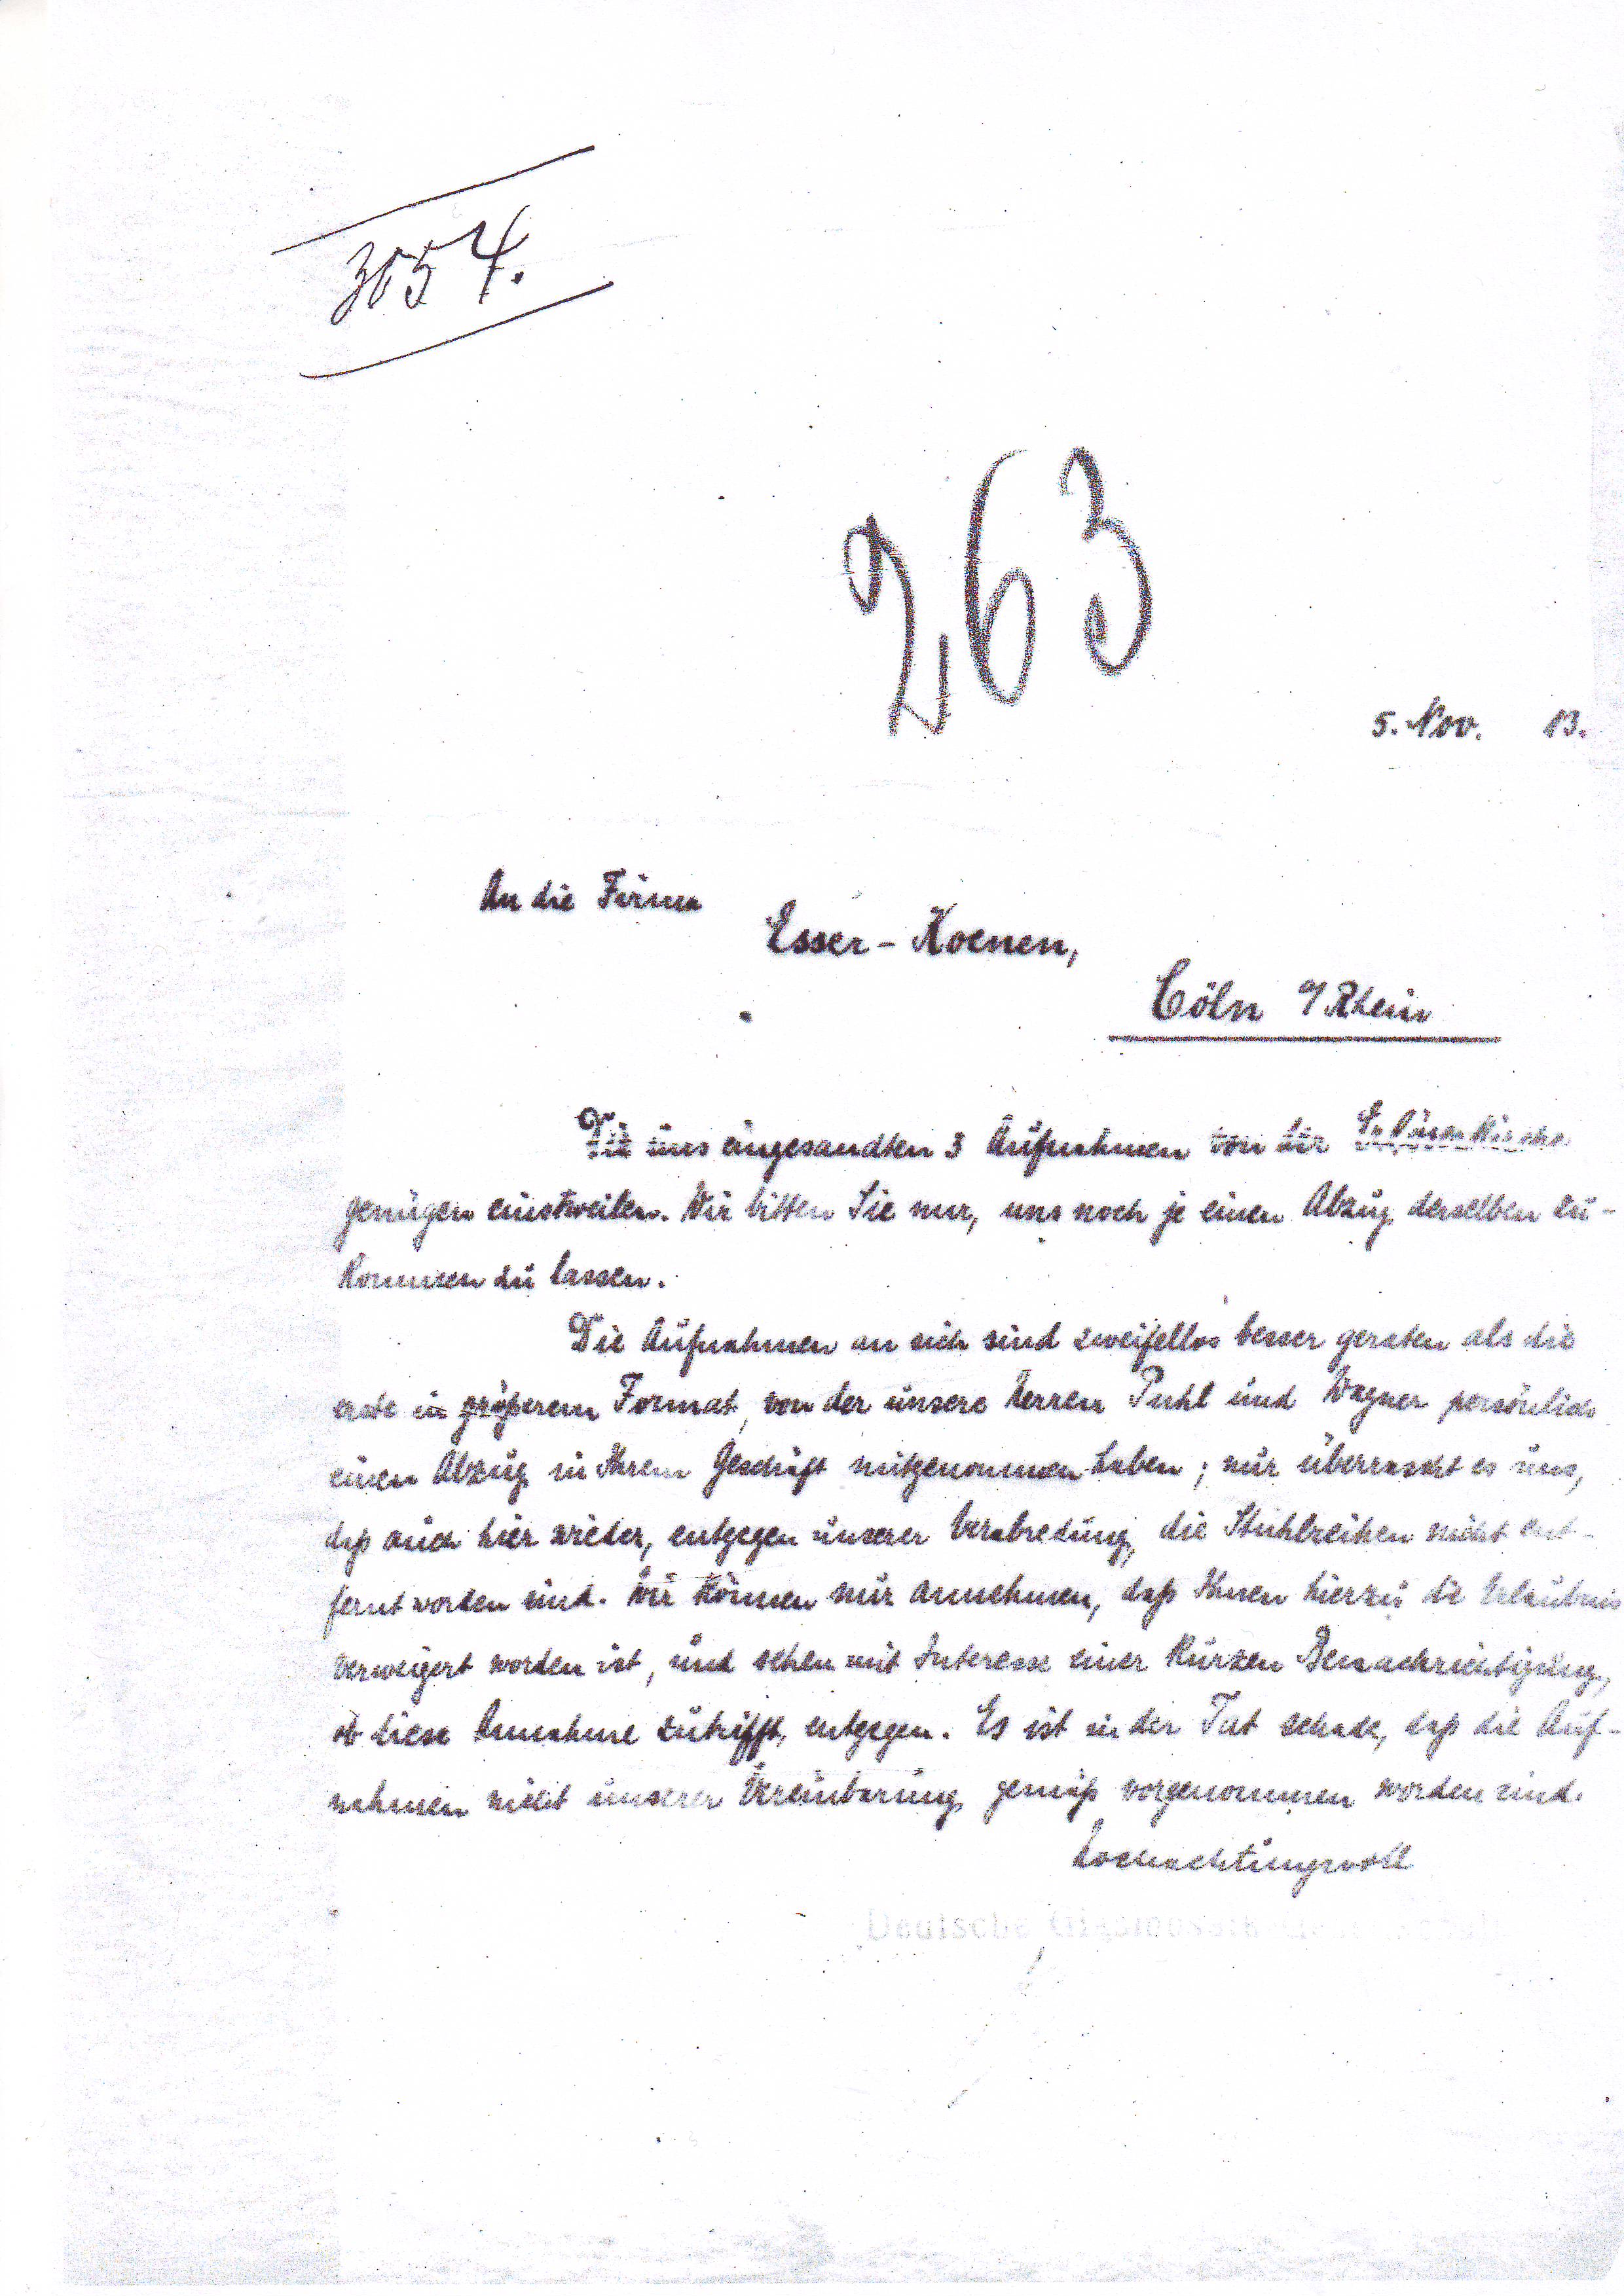 3654.
263
5. Nov. 13.
An die Firma
Esser-Koenen,
Cöln a/Rhein
Die uns eingesandten 3 Aufnahmen von der
genügen einstweilen. Wir bitten Sie nur, uns noch je einen Abzug derselben zu-
kommen zu lassen.
Die Aufnahmen an sich sind zweifellos besser geraten als die
erste in größerem Format, von der unsere Herren Puhl und Wagner persönlich
einen Abzug in Ihrem Geschäft mitgenommen haben; nur überrascht es uns,
daß auch hier wieder, entgegen unserer Verabredung, die Stuhlreihen nicht ent-
fernt worden sind. Wir können nur annehmen, daß Ihnen hierzu die Erlaubnis
verweigert worden ist, und sehen mit Interesse einer kurzen Benachrichtigung,
ob diese Annahme zutrifft, entgegen. Es ist in der Tat schade, daß die Auf-
nahmen nicht unserer Vereinbarung gemäß vorgenommen worden sind.
Hochachtungsvoll
Deutsche